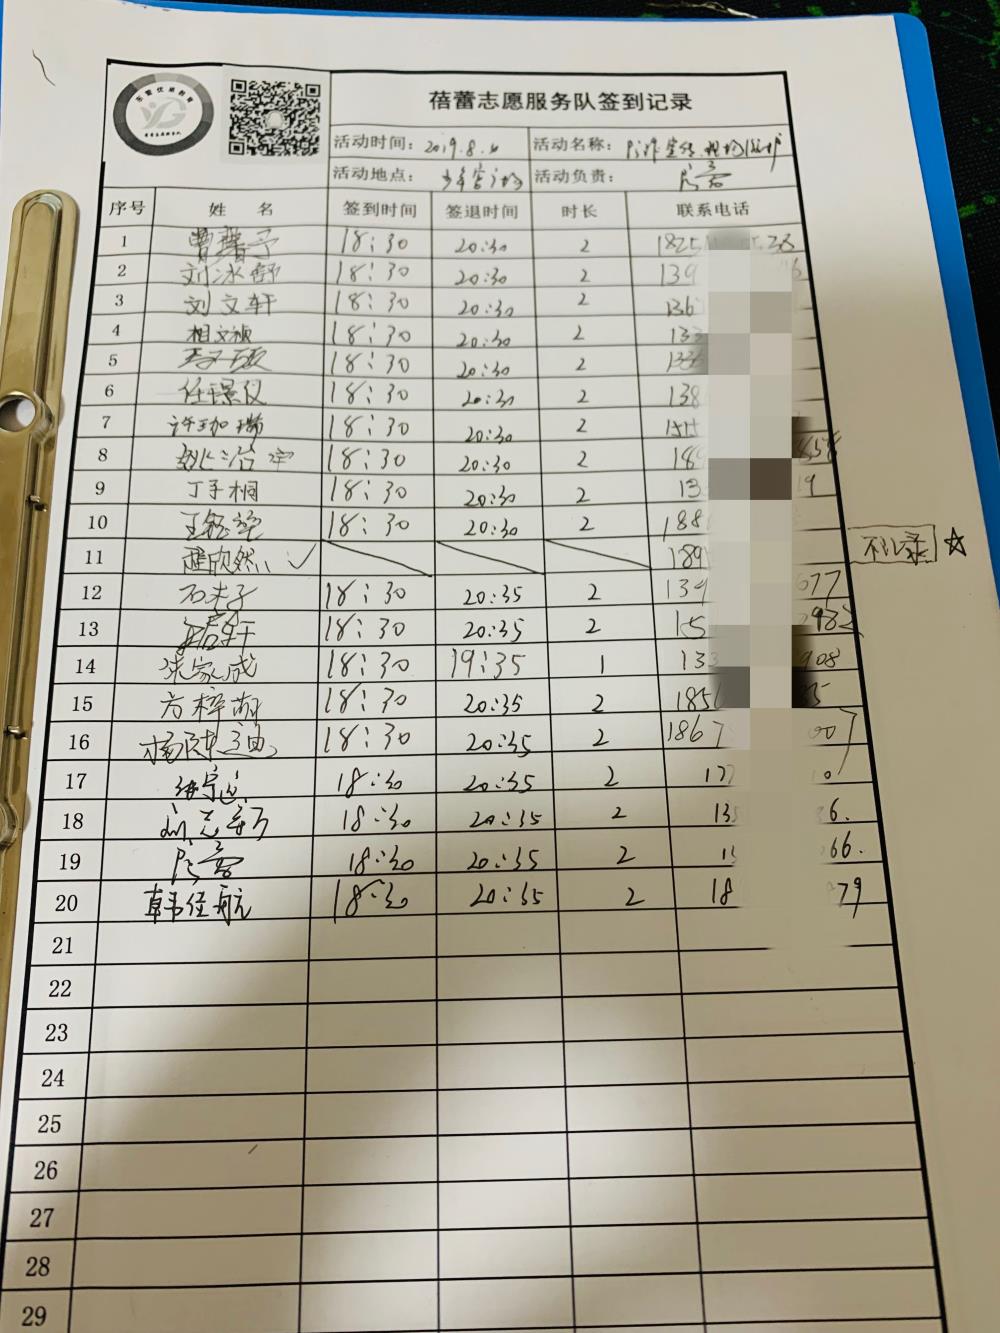 蓓蕾志愿服务队签到记录
活动时间: 2019.8. 活动名称:
活动地点: 少年宫广场 活动负责:
序号 姓 名 签到时间 签退时间 时长 联系电话
1 曹馨予 18:30 20:30 2 1825
2 刘冰舒 18:30 20:30 2 139
3 刘文轩 18:30 20:30 2 136
4 相文祯 18:30 20:30 2 133
5 18:30 20:30 2
6 任璟仪 18:30 20:30 2 138
7 许珈瑞 18:30 20:30 2
8 姚浩宇 18:30 20:30 2
9 丁子桐 18:30 20:30 2 13 19
10 王钰莹 18:30 20:30 2 188
11 欣然 ✓ 189 不记录 ☆
12 石夫子 18:30 20:35 2 139 677
13 18:30 20:35 2 15 2982
14 张家成 18:30 19:35 1 133 908
15 方梓萌 18:30 20:35 2 1856 5
16 杨陈迪 18:30 20:35 2 1867 007
17 18:30 20:35 2 177 0
18 18:30 20:35 2 135 6.
19 18:30 20:35 2 66.
20 韩经航 18:30 20:35 2 18 79
21
22
23
24
25
26
27
28
29